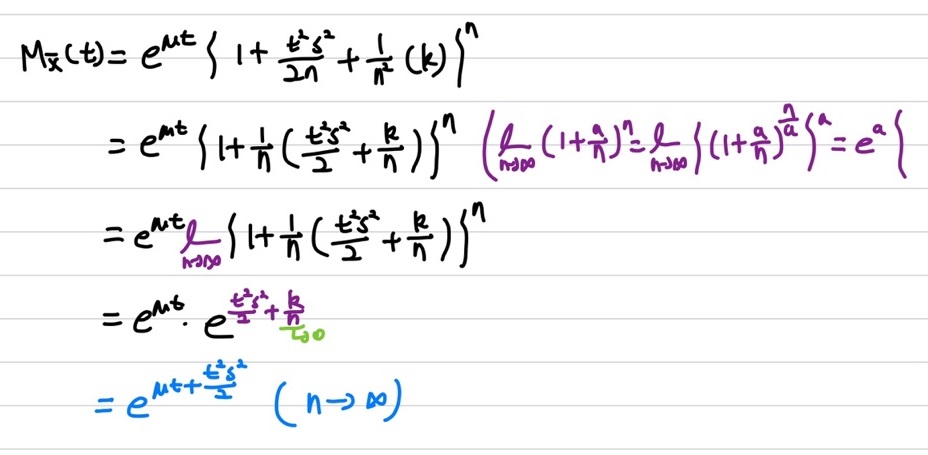 M_x̄(t) = e^{μt} { 1 + t²s²/2n + 1/n² (k) }^n
= e^{μt} { 1 + 1/n ( t²s²/2 + k/n ) }^n ( lim_{n→∞} (1 + a/n)^n = lim_{n→∞} { (1 + a/n)^{n/a} }^a = e^a {
= e^{μt} lim_{n→∞} { 1 + 1/n ( t²s²/2 + k/n ) }^n
= e^{μt} · e^{t²s²/2 + k/n} →0
= e^{μt + t²s²/2} ( n → ∞ )